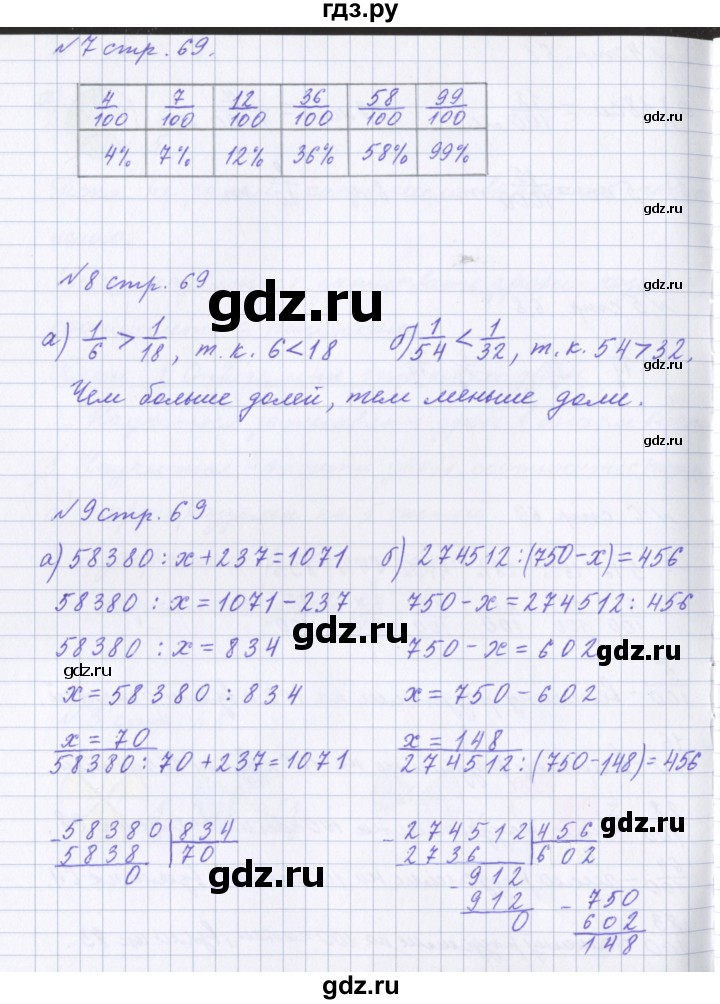 гдз.ру
№7 стр. 69.
4/100 7/100 12/100 36/100 58/100 99/100
4% 7% 12% 36% 58% 99%
gdz.ru
gdz.ru
№8 стр. 69
gdz.ru
а) 1/6 > 1/18, т. к. 6 < 18 б) 1/54 < 1/32, т. к. 54 > 32.
gdz.ru
Чем больше долей, тем меньше доли.
gdz.ru
№9 стр. 69
gdz.ru
а) 58380 : х + 237 = 1071 б) 274512 : (750 - х) = 456
58380 : х = 1071 - 237 750 - х = 274512 : 456
gdz.ru
58380 : х = 834 750 - х = 602
gdz.ru
gdz.ru
х = 58380 : 834 х = 750 - 602
х = 70 х = 148
58380 : 70 + 237 = 1071 274512 : (750 - 148) = 456
gdz.ru
-58380 834 -274512 456
5838 70 2736 602
gdz.ru
0 -912
912 -750
0 602
148
gdz.ru
gdz.ru